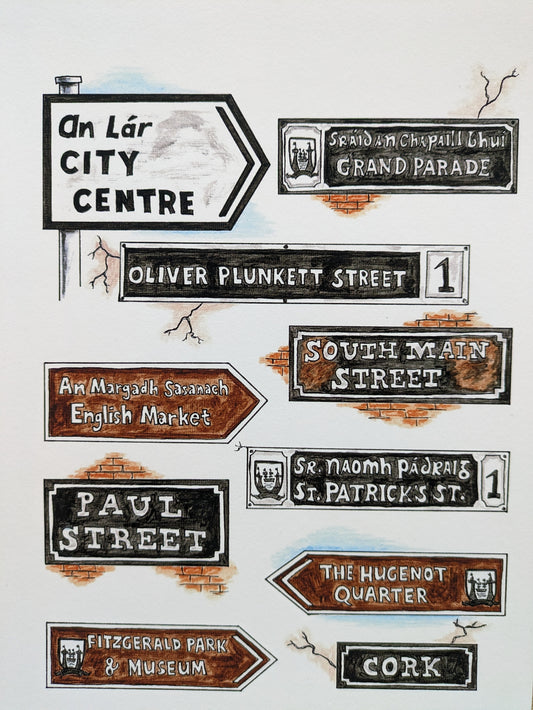 An Lár
CITY
CENTRE
Sráid an Chapaill Bhuí
GRAND PARADE
OLIVER PLUNKETT STREET 1
SOUTH MAIN
STREET
An Margadh Sasanach
English Market
Sr. Naomh Pádraig
ST. PATRICK'S ST. 1
PAUL
STREET
THE HUGENOT
QUARTER
FITZGERALD PARK
& MUSEUM
CORK